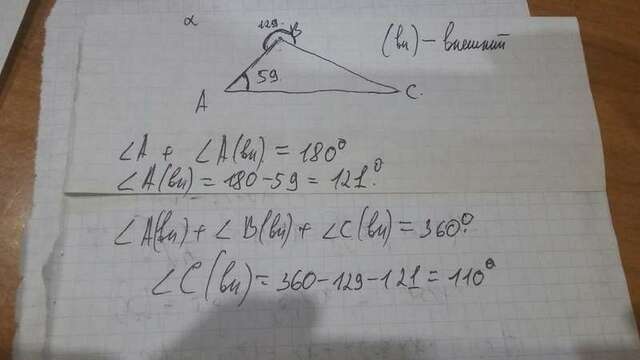 α
129
B
(вн) - внешний
59
A
C.
∠A + ∠A(вн) = 180°
∠A(вн) = 180-59 = 121°.
∠A(вн) + ∠B(вн) + ∠C(вн) = 360°.
∠C(вн) = 360-129-121 = 110°